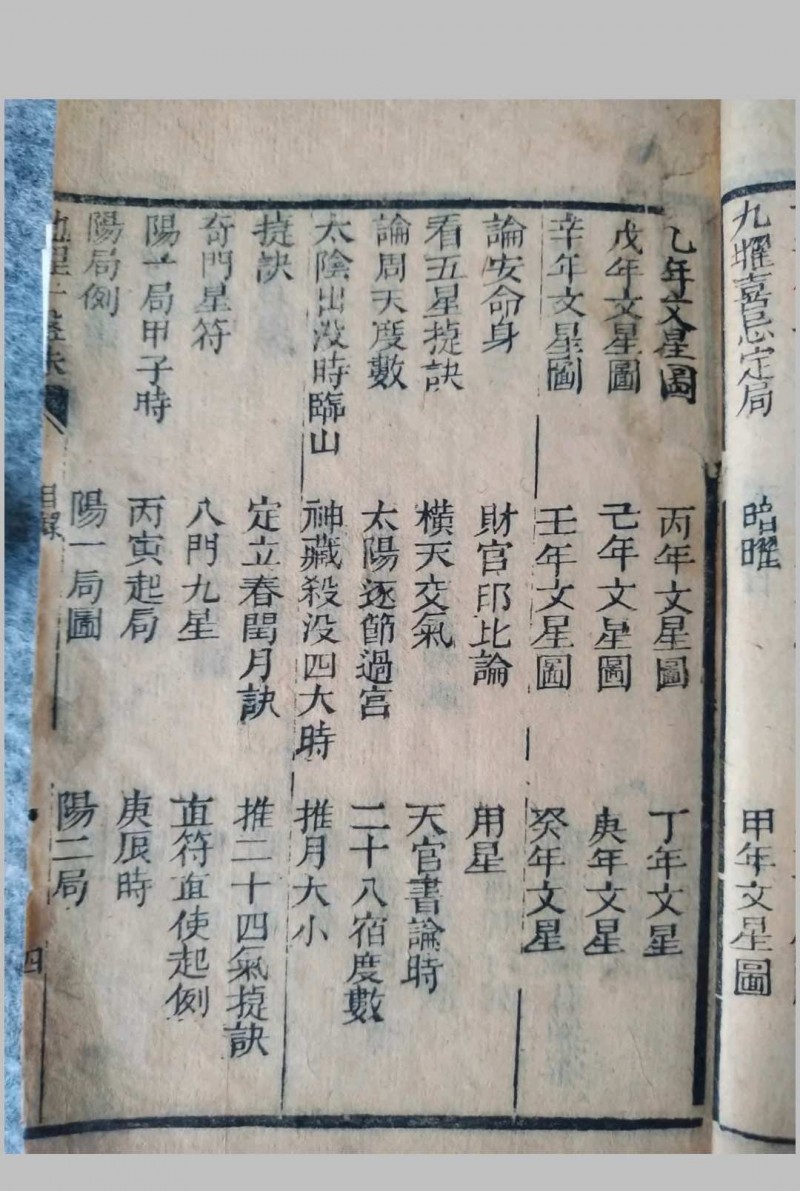 九曜喜忌定局 㫚曜 甲年文星圖
乙年文星圖 丙年文星圖 丁年文星
戊年文星圖 己年文星圖 庚年文星
辛年文星圖 壬年文星圖 癸年文星
論安命身 財官印比論 用星
看五星㨗訣 橫天交氣 天官書論時
論周天度數 太陽逐節過宮 二十八宿度數
太陰出没時臨山 神藏殺没四大時 推月大小
㨗訣 定立春閏月訣 推二十四氣㨗訣
奇門星符 八門九星 直符直使起例
陽一局甲子時 丙寅起局 庚辰時
陽局例 陽一局圖 陽二局
目錄 四